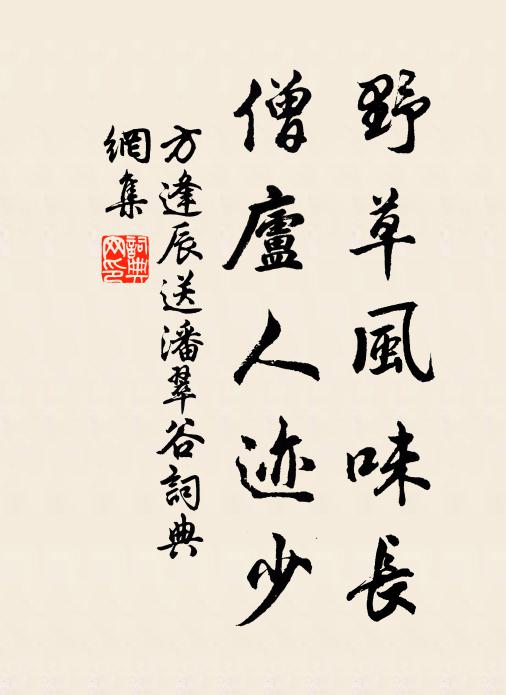 野草風味長
僧廬人迹少
方逢辰送潘翠谷詞典
網集
詞典網印